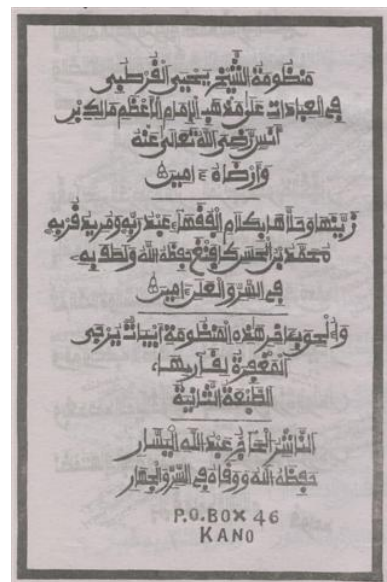 مَنْظُومَةُ الشَّيْخِ يَحْيَى الْقُرْطُبِي
فِي الْعِبَادَاتِ عَلَى مَذْهَبِ الْإِمَامِ الْأَعْظَمِ مَالِكِ بْنِ
أَنَسٍ رَضِيَ اللَّهُ تَعَالَى عَنْهُ
وَأَرْضَاهُ ءَامِينَ
زَيَّنَهَا وَحَلَّاهَا بِكَلَامِ الْفُقَهَاءِ عَبْدُ رَبِّهِ وَمُرِيدُ قُرْبِهِ
مُحَمَّدُ بْنُ الْحَسَنِ حَفِظَهُ اللَّهُ وَلَطَفَ بِهِ
فِي السِّرِّ وَالْعَلَنِ ءَامِينَ
ءَاخِرِ هَذِهِ الْمَنْظُومَةِ أَبْيَاتٌ يُرْجَى
الْمَغْفِرَةُ لِقَارِيهَا
الطَّبْعَةُ الثَّانِيَةُ
النَّاشِرُ الْحَاجُّ عَبْدُ اللَّهِ الْيَسَّار
حَفِظَهُ اللَّهُ وَوَقَاهُ فِي السِّرِّ وَالْجِهَارِ
P.O.BOX 46
KANO